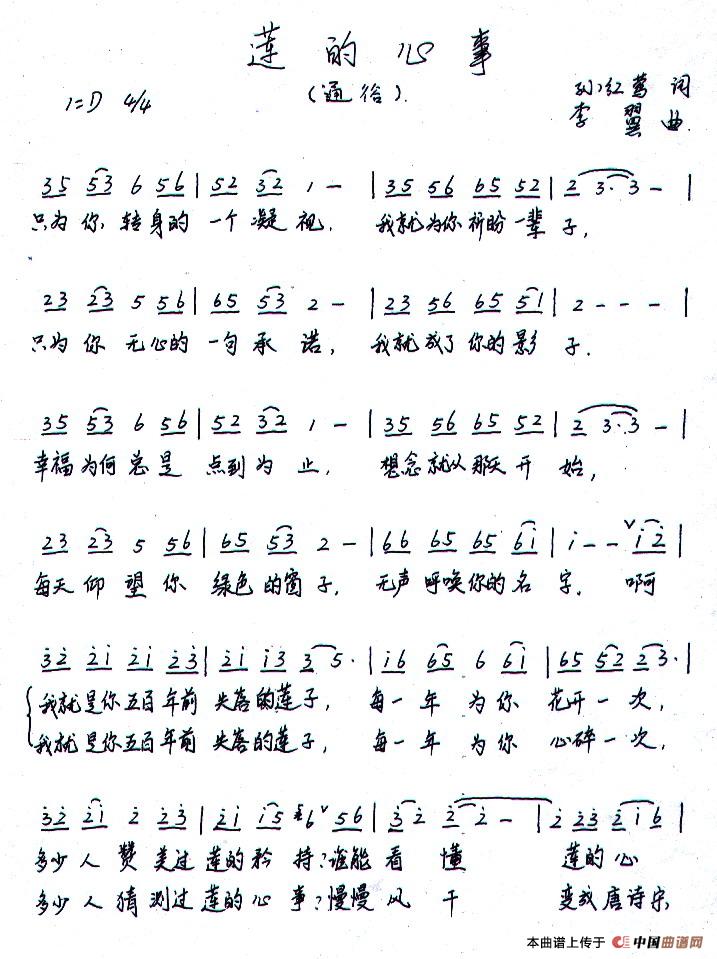 莲的心事
(通俗)
1=D 4/4
孙红莺 词
李翼 曲
35 53 6 56 | 52 32 1 - | 35 56 65 52 | 2 3·3 - |
只为你,转身的一个凝视, 我就为你祈盼一辈子,
23 23 5 56 | 65 53 2 - | 23 56 65 51 | 2 - - - |
只为你无心的一句承诺, 我就成了你的影子.
35 53 6 56 | 52 32 1 - | 35 56 65 52 | 2 3·3 - |
幸福为何总是点到为止, 想念就从那天开始,
23 23 5 56 | 65 53 2 - | 66 65 65 6i | i - - v i 2̇ |
每天仰望你绿色的窗子, 无声呼唤你的名字. 啊
3̇2̇ 2̇i 2̇i 2̇3̇ | 2̇i i3̇ 3̇ 5· | i6 65 6 6i | 65 52 23· |
我就是你五百年前失落的莲子, 每一年为你花开一次,
我就是你五百年前失落的莲子, 每一年为你心碎一次,
3̇2̇ 2̇i 2̇ 2̇3̇ | 2̇i i5 6 v 56 | 3̇2̇ 2̇ 2̇ - | 2̇ 2̇3̇ 2̇i 6 |
多少人赞美过莲的矜持?谁能看懂 莲的心
多少人猜测过莲的心事?慢慢风干 变成唐诗宋
本曲谱上传于 中国曲谱网